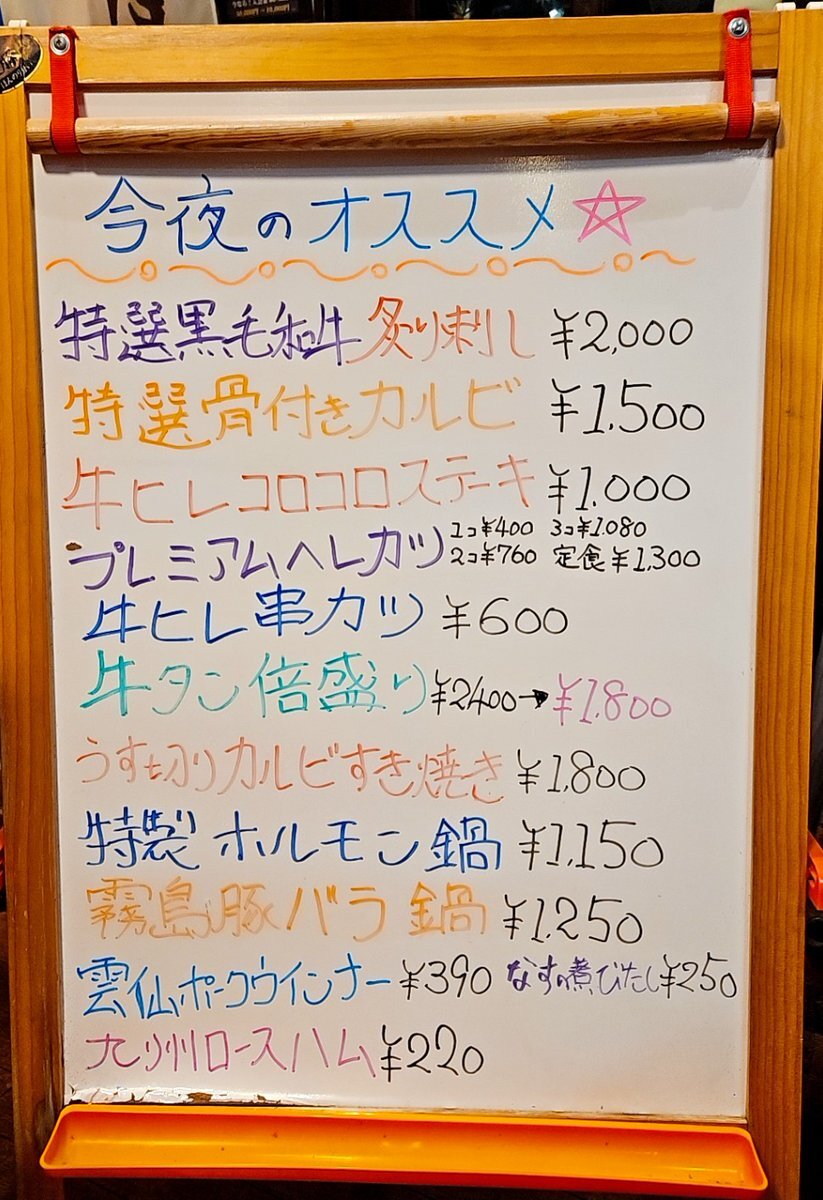 今夜のオススメ☆
特選黒毛和牛炙り刺し ¥2,000
特選骨付きカルビ ¥1,500
牛ヒレコロコロステーキ ¥1,000
プレミアムヘレカツ 1コ¥400 3コ¥1,080
2コ¥760 定食¥1,300
牛ヒレ串カツ ¥600
牛タン倍盛り ¥2400→¥1,800
うす切りカルビすき焼き ¥1,800
特製ホルモン鍋 ¥1,150
霧島豚バラ鍋 ¥1,250
雲仙ポークウインナー ¥390 なすの煮びたし ¥250
九州ロースハム ¥220